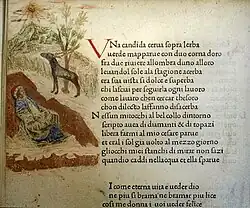 VNa candida cerua sopra lerba
uerde mapparue con duo corna doro
fra due riuiere allombra duno alloro
leuandol sole ala stagione acerba
era sua uista si dolce e superba
chi lasciai per seguirla ogni lauoro
come lauaro chen cercar thesoro
chon dilecto laffanno disacerba
Nessun mi tocchi al bel collo dintorno
scripto auea di diamanti & di topazi
libera farmi al mio cesare parue
et eral sol gia uolto al mezzo giorno
gliocchi miei stanchi di mirar non sazi
quandio caddi nellacqua et ella sparue
Si come eterna uita e ueder dio
ne piu si brama ne bramar piu lice
cosi me donna il uoi ueder felice